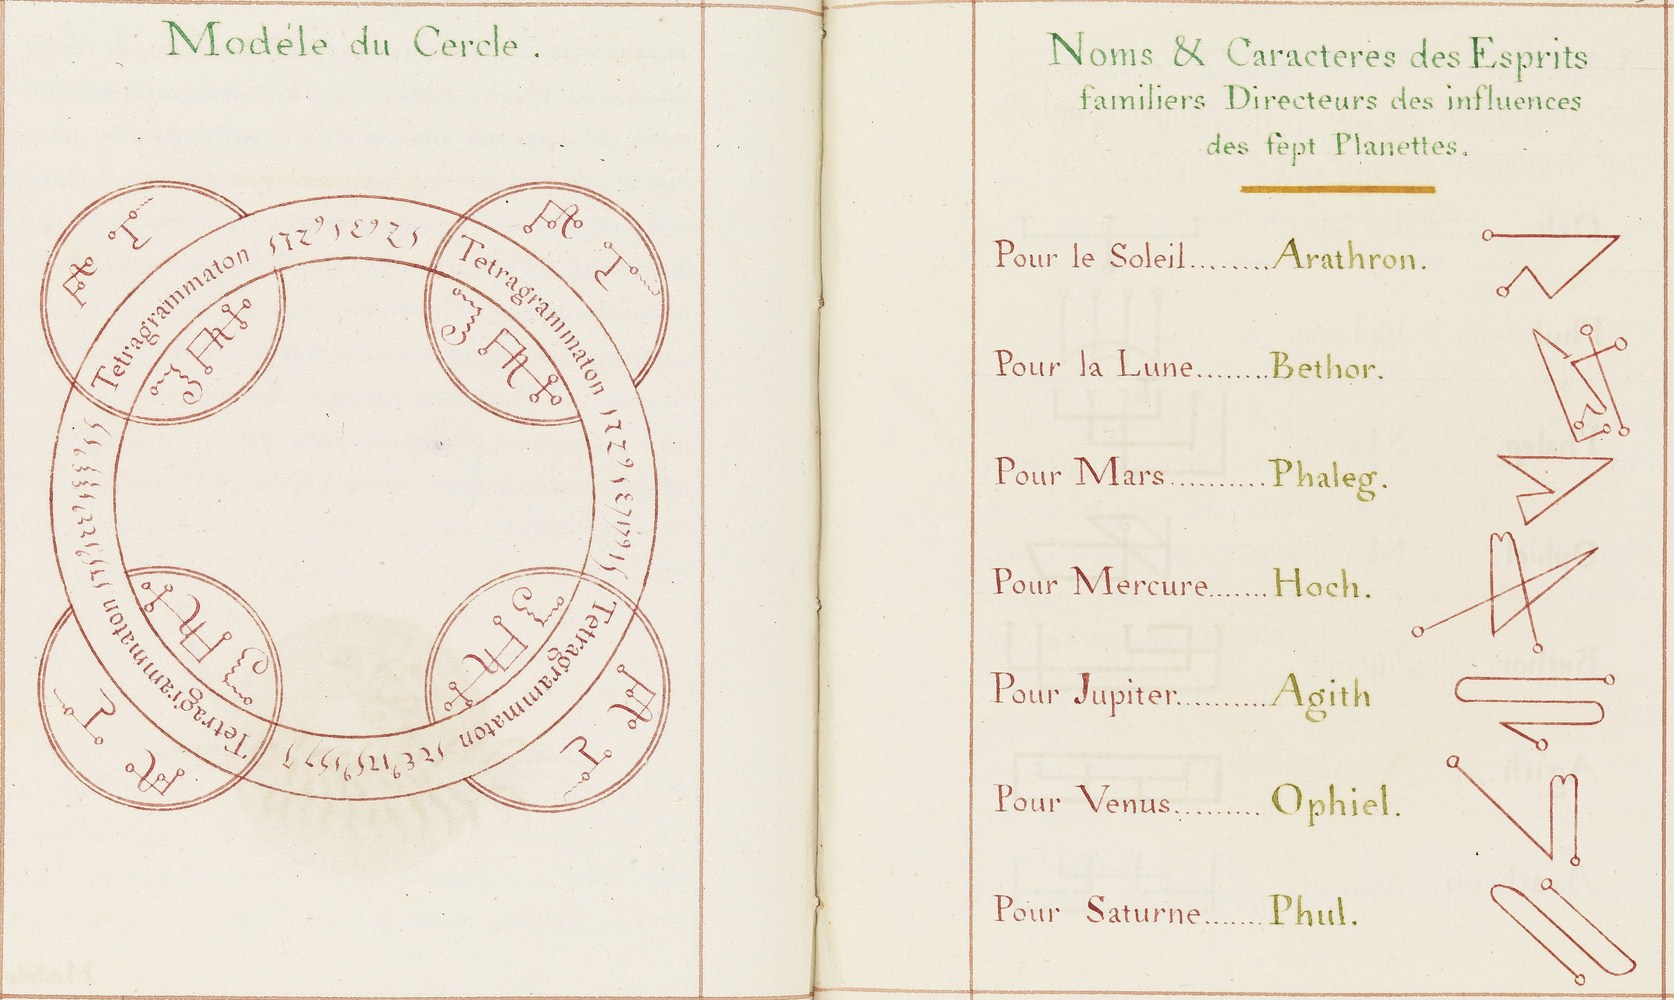 Modéle du Cercle.
Tetragrammaton
Tetragrammaton
Tetragrammaton
Tetragrammaton
Noms & Caracteres des Esprits
familiers Directeurs des influences
des sept Planettes.
Pour le Soleil........Arathron.
Pour la Lune........Bethor.
Pour Mars..........Phaleg.
Pour Mercure.......Hoch.
Pour Jupiter..........Agith
Pour Venus.........Ophiel.
Pour Saturne.......Phul.